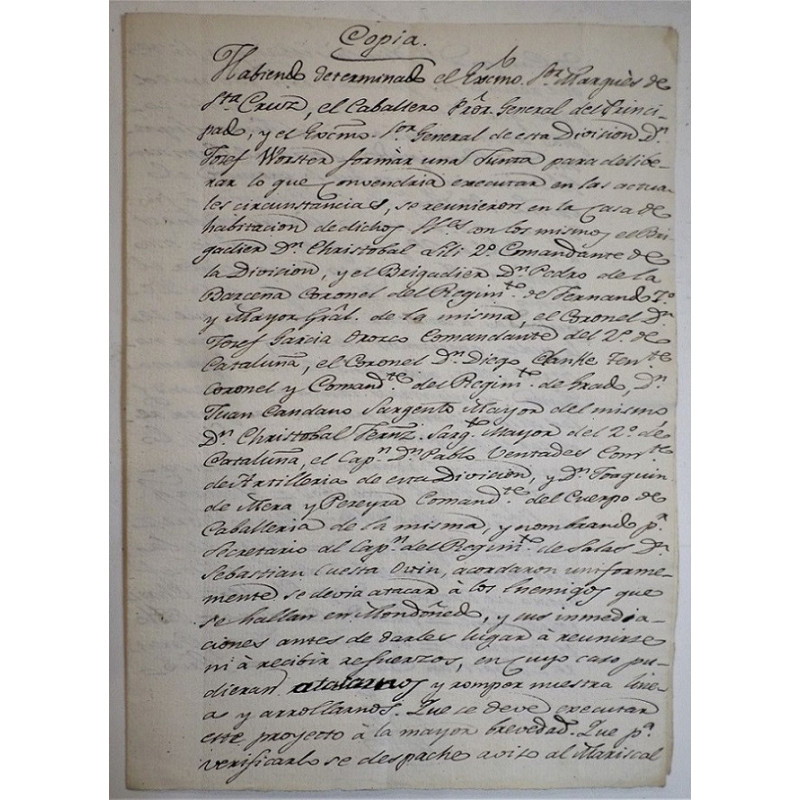 Copia.
Habiendo determinado el Excmo. Sor. Marquès de
Sta Cruz, el Caballero Pror. General del Princi-
pado, y el Excmo. Sor. General de esta Division Dn.
Josef Worster formàr una Junta para delibe-
rar lo que convendria executar en las actua-
les circunstancias, se reunieron en la Casa de
habitacion de dichos Sres con los mismos el Bri-
gadier Dn. Christobal Lili 2º. Comandante de
la Division, y el Brigadier Dn. Pedro de la
Barcena Coronel del Regimto. de Fernando 7º.
y Mayor Gràl. de la misma, el Coronel Dn.
Josef Garcia Orozco Comandante del 2º. de
Cataluña, el Coronel Dn. Diego Clarke Tente.
Coronel y Comandte. del Regimto. de Grado, Dn.
Juan Candano Sargento Mayor del mismo
Dn. Christobal Fernz. Sargto. Mayor del 2º. de
Cataluña, el Capn. Dn. Pablo Ventades Comte.
de Artilleria de esta Division, y Dn. Joaquin
de Mera y Pereyra Comandte. del Cuerpo de
Caballeria de la misma, y nombrando pa.
Secretario al Capn. del Regimto. de Salas Dn.
Sebastian Cuesta acordaron uniforme-
mente se devia atacar à los Enemigos que
se hallan en Mondoñedo, y sus inmedia-
ciones antes de darles lugar à reunirse
ni à recibir refuerzos, en cuyo caso pu-
dieran atacarnos y romper nuestra line-
a y arrollarnos. Que se deve executar
este proyecto à la mayor brevedad. Que pa.
verificarlo se despache aviso al Mariscal